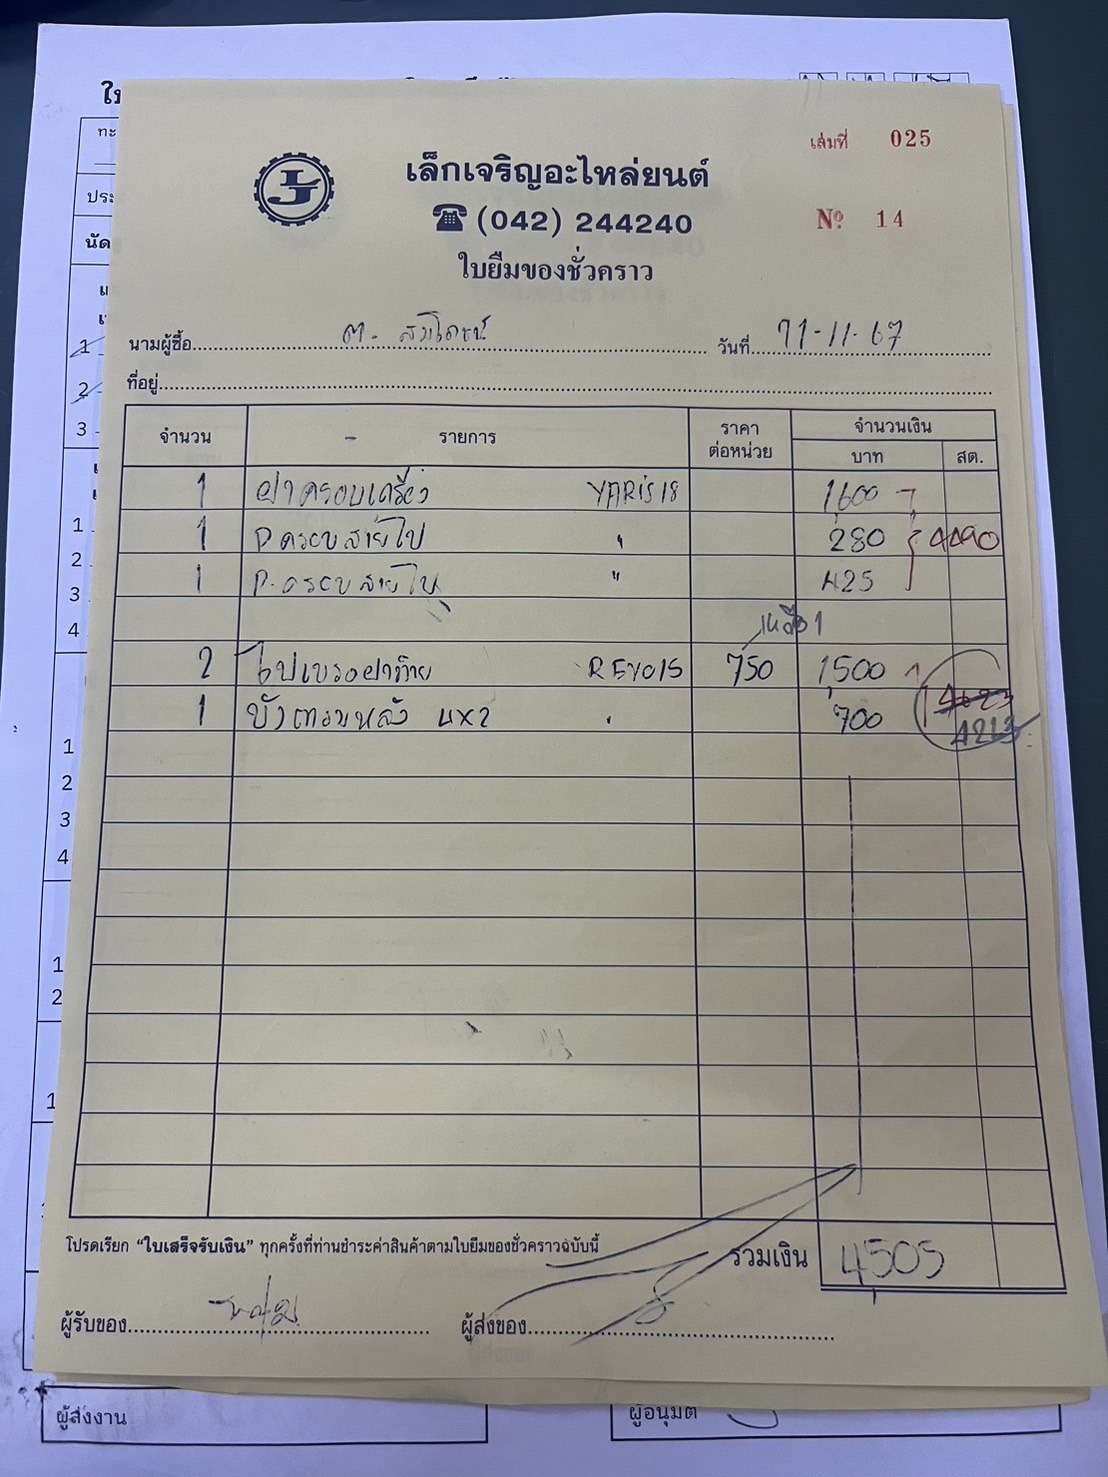 เล่มที่ 025
เล็กเจริญอะไหล่ยนต์
LJ
☎ (042) 244240
№ 14
ใบยืมของชั่วคราว
นามผู้ซื้อ วันที่ 11-11-67
ที่อยู่
จำนวน - รายการ ราคาต่อหน่วย จำนวนเงิน
บาท สต.
1 ฝาครอบเครื่อง YARIS 18 1,600
1 ป.ครอบสายไป " 280 4490
1 ป.ครอบสายไป " 425
เหลือ 1
2 REVO15 750 1,500
1 บังหลัง 4x2 " 700 4213
โปรดเรียก "ใบเสร็จรับเงิน" ทุกครั้งที่ท่านชำระค่าสินค้าตามใบยืมของชั่วคราวฉบับนี้
รวมเงิน 4,505
ผู้รับของ ผู้ส่งของ
ผู้ส่งงาน ผู้อนุมัติ